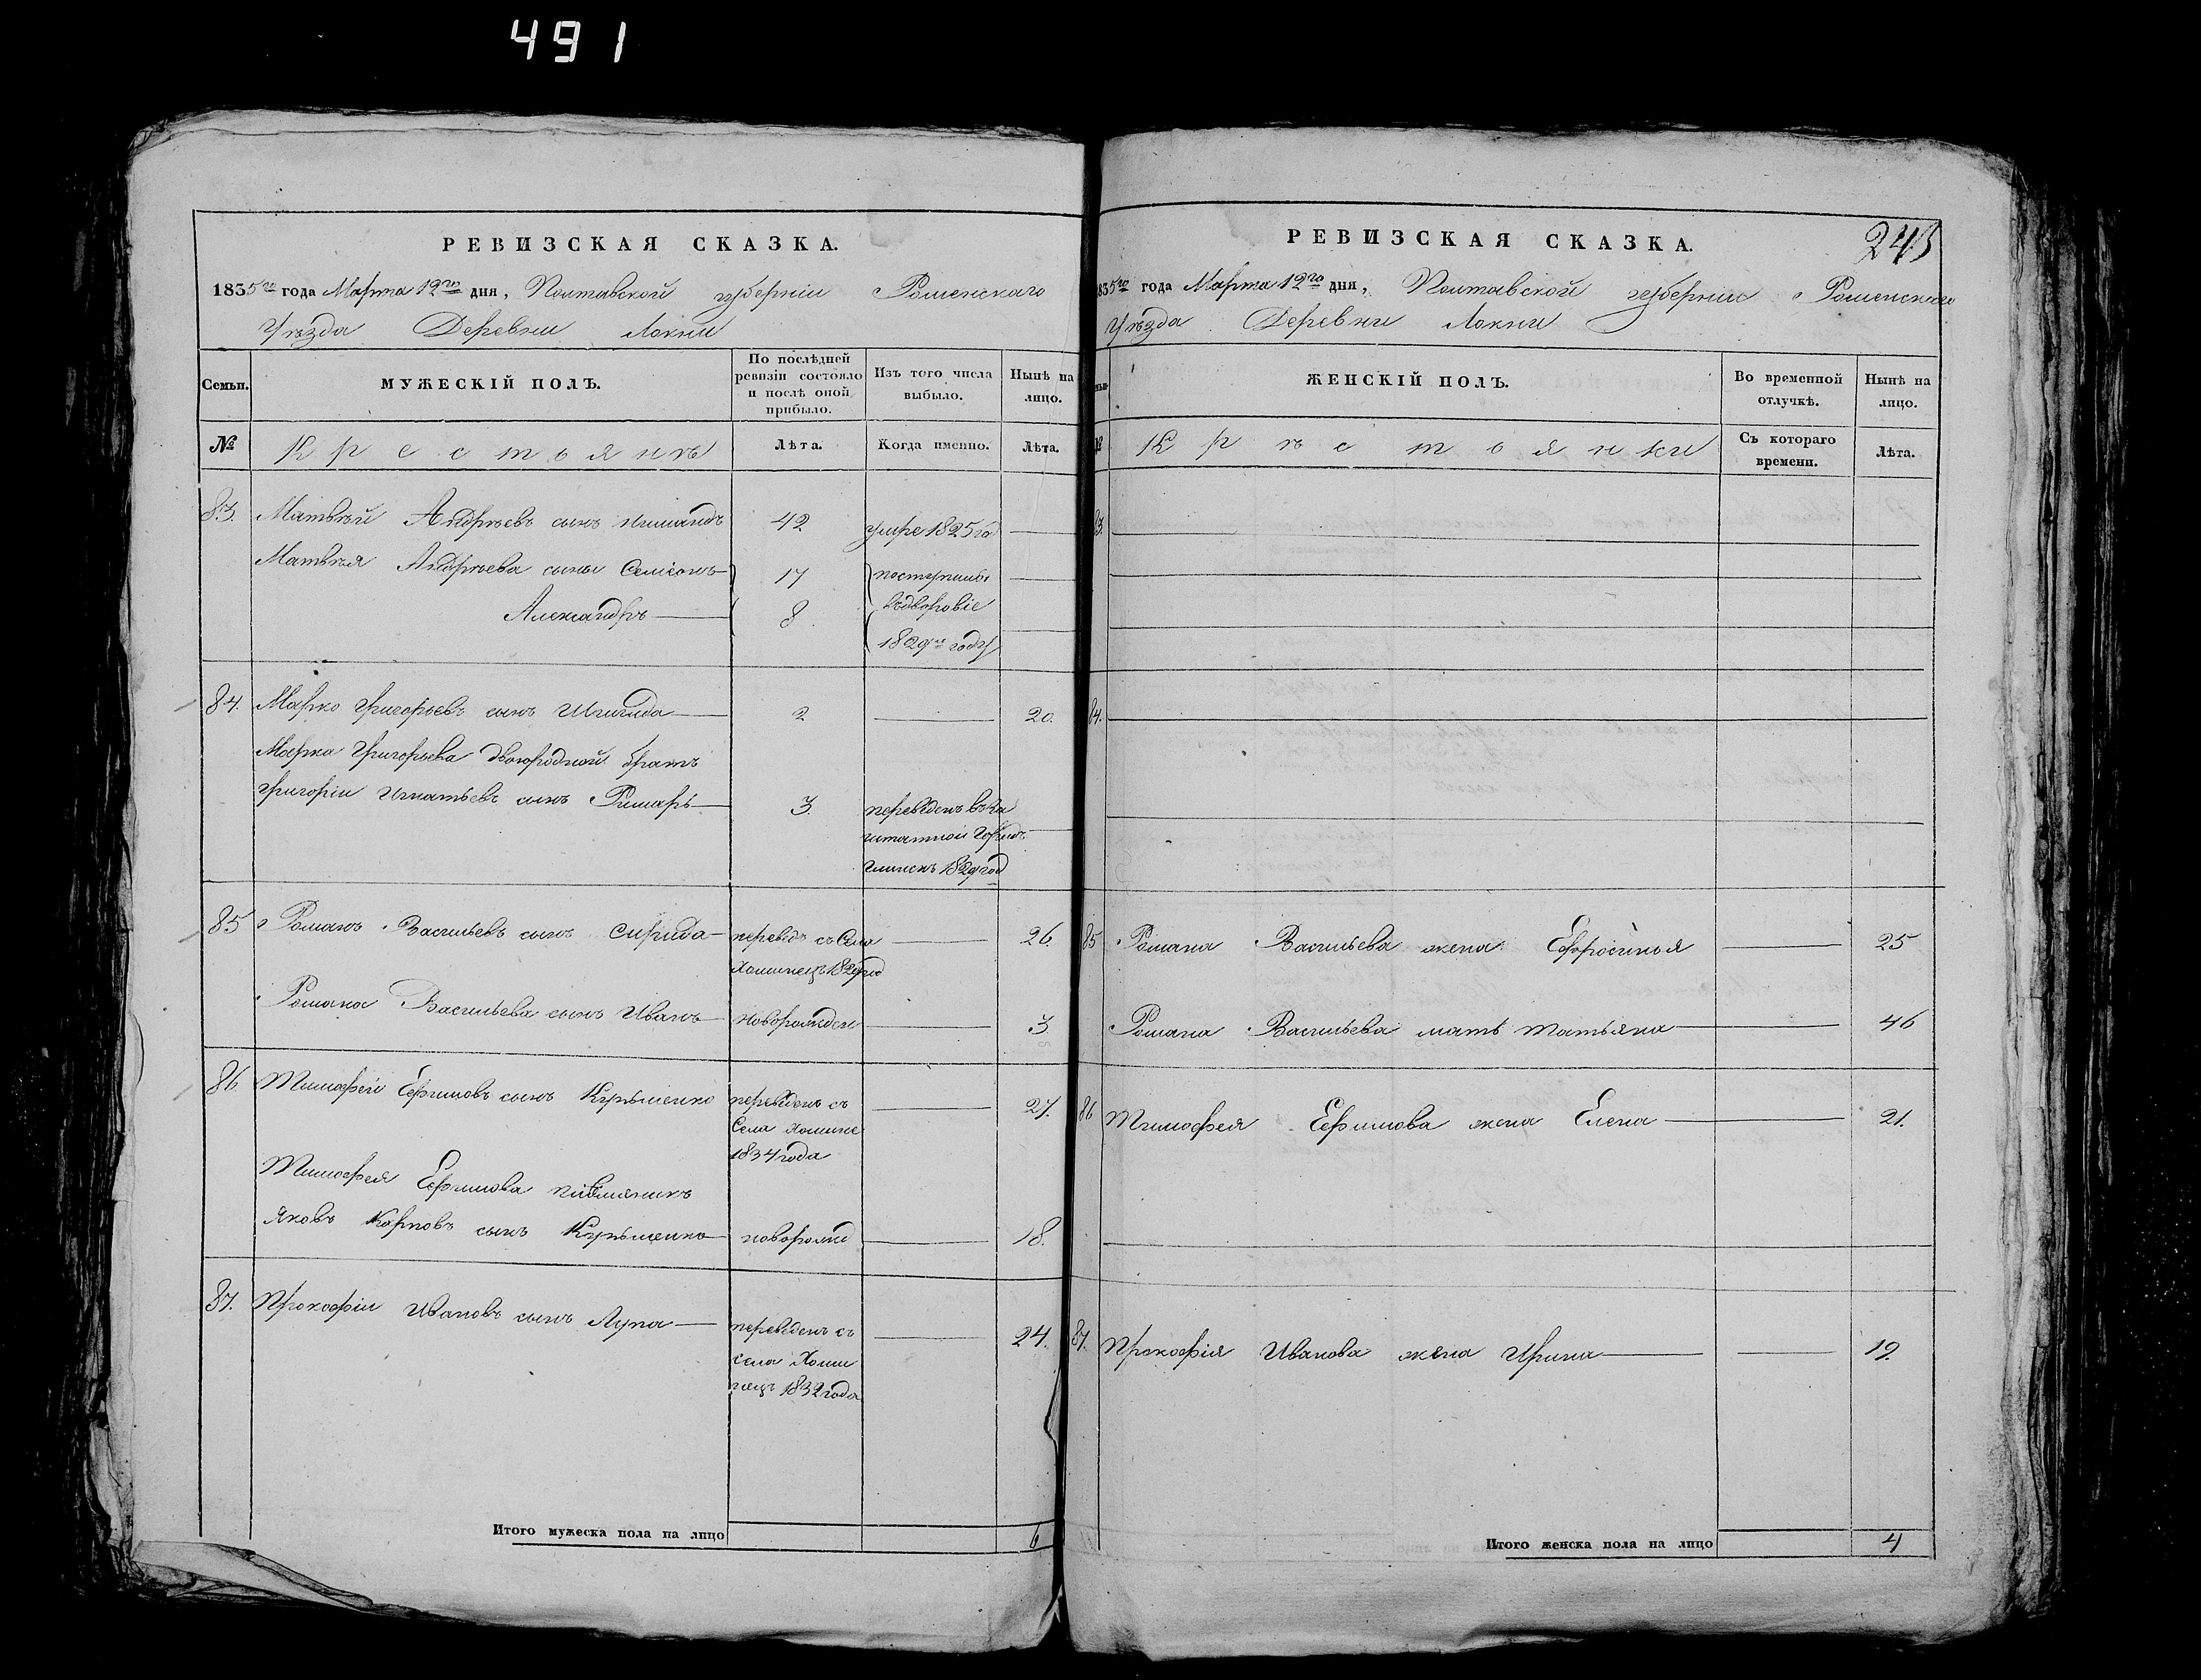 491
РЕВИЗСКАЯ СКАЗКА.
1835го года Марта 12го дня, Полтавской губерніи Роменского
Уѣзда Деревни Локни
Семьи. МУЖЕСКІЙ ПОЛЪ. По послѣдней ревизіи состояло и послѣ оной прибыло. Изъ того числа выбыло. Нынѣ на лицо.
№ Крестоянъ Лѣта. Когда именно. Лѣта.
83. Матвѣй Андрѣевъ сынъ 42 умре 1825 го
Матвѣя Андрѣева сыны Семіонъ 17 поступилы
Александръ 8 въдворовіе
1829го году
84. Марко Григорьевъ сынъ 2 20.
Марка Григорьева двоюродной братъ
Григоріи Игнатьевъ сынъ Римарь 3. переведенъ въ За
штатной Город
Глинскъ 1829 год
85 Романъ Васильевъ сынъ Сирида перевед съ Села 26.
Хоминецъ 1829 год
Романа Васильева сынъ Иванъ новорожден 3
86 Тимофей Ефимовъ сынъ переведенъ съ 27.
Села Хомине
1834 года
Тимофея Ефимова племяникъ
Яковъ Карповъ сынъ новорожд 18.
87. Прокофіи Ивановъ сынъ Лупа переведенъ съ 24.
села Хоми
нецъ 1832 года
Итого мужеска пола на лицо 6
243
РЕВИЗСКАЯ СКАЗКА.
1835го года Марта 12го дня, Полтавской губерніи Роменского
Уѣзда Деревни Локни
ЖЕНСКІЙ ПОЛЪ. Во временной отлучкѣ. Нынѣ на лицо.
№ Крѣстоянки Съ котораго времени. Лѣта.
83.
84.
85 Романа Васильева жена Ефросинья 25
Романа Васильева мать Татьяна 46
86 Тимофея Ефимова жена Елена 21.
87. Прокофія Иванова жена Ирина 19.
Итого женска пола на лицо 4